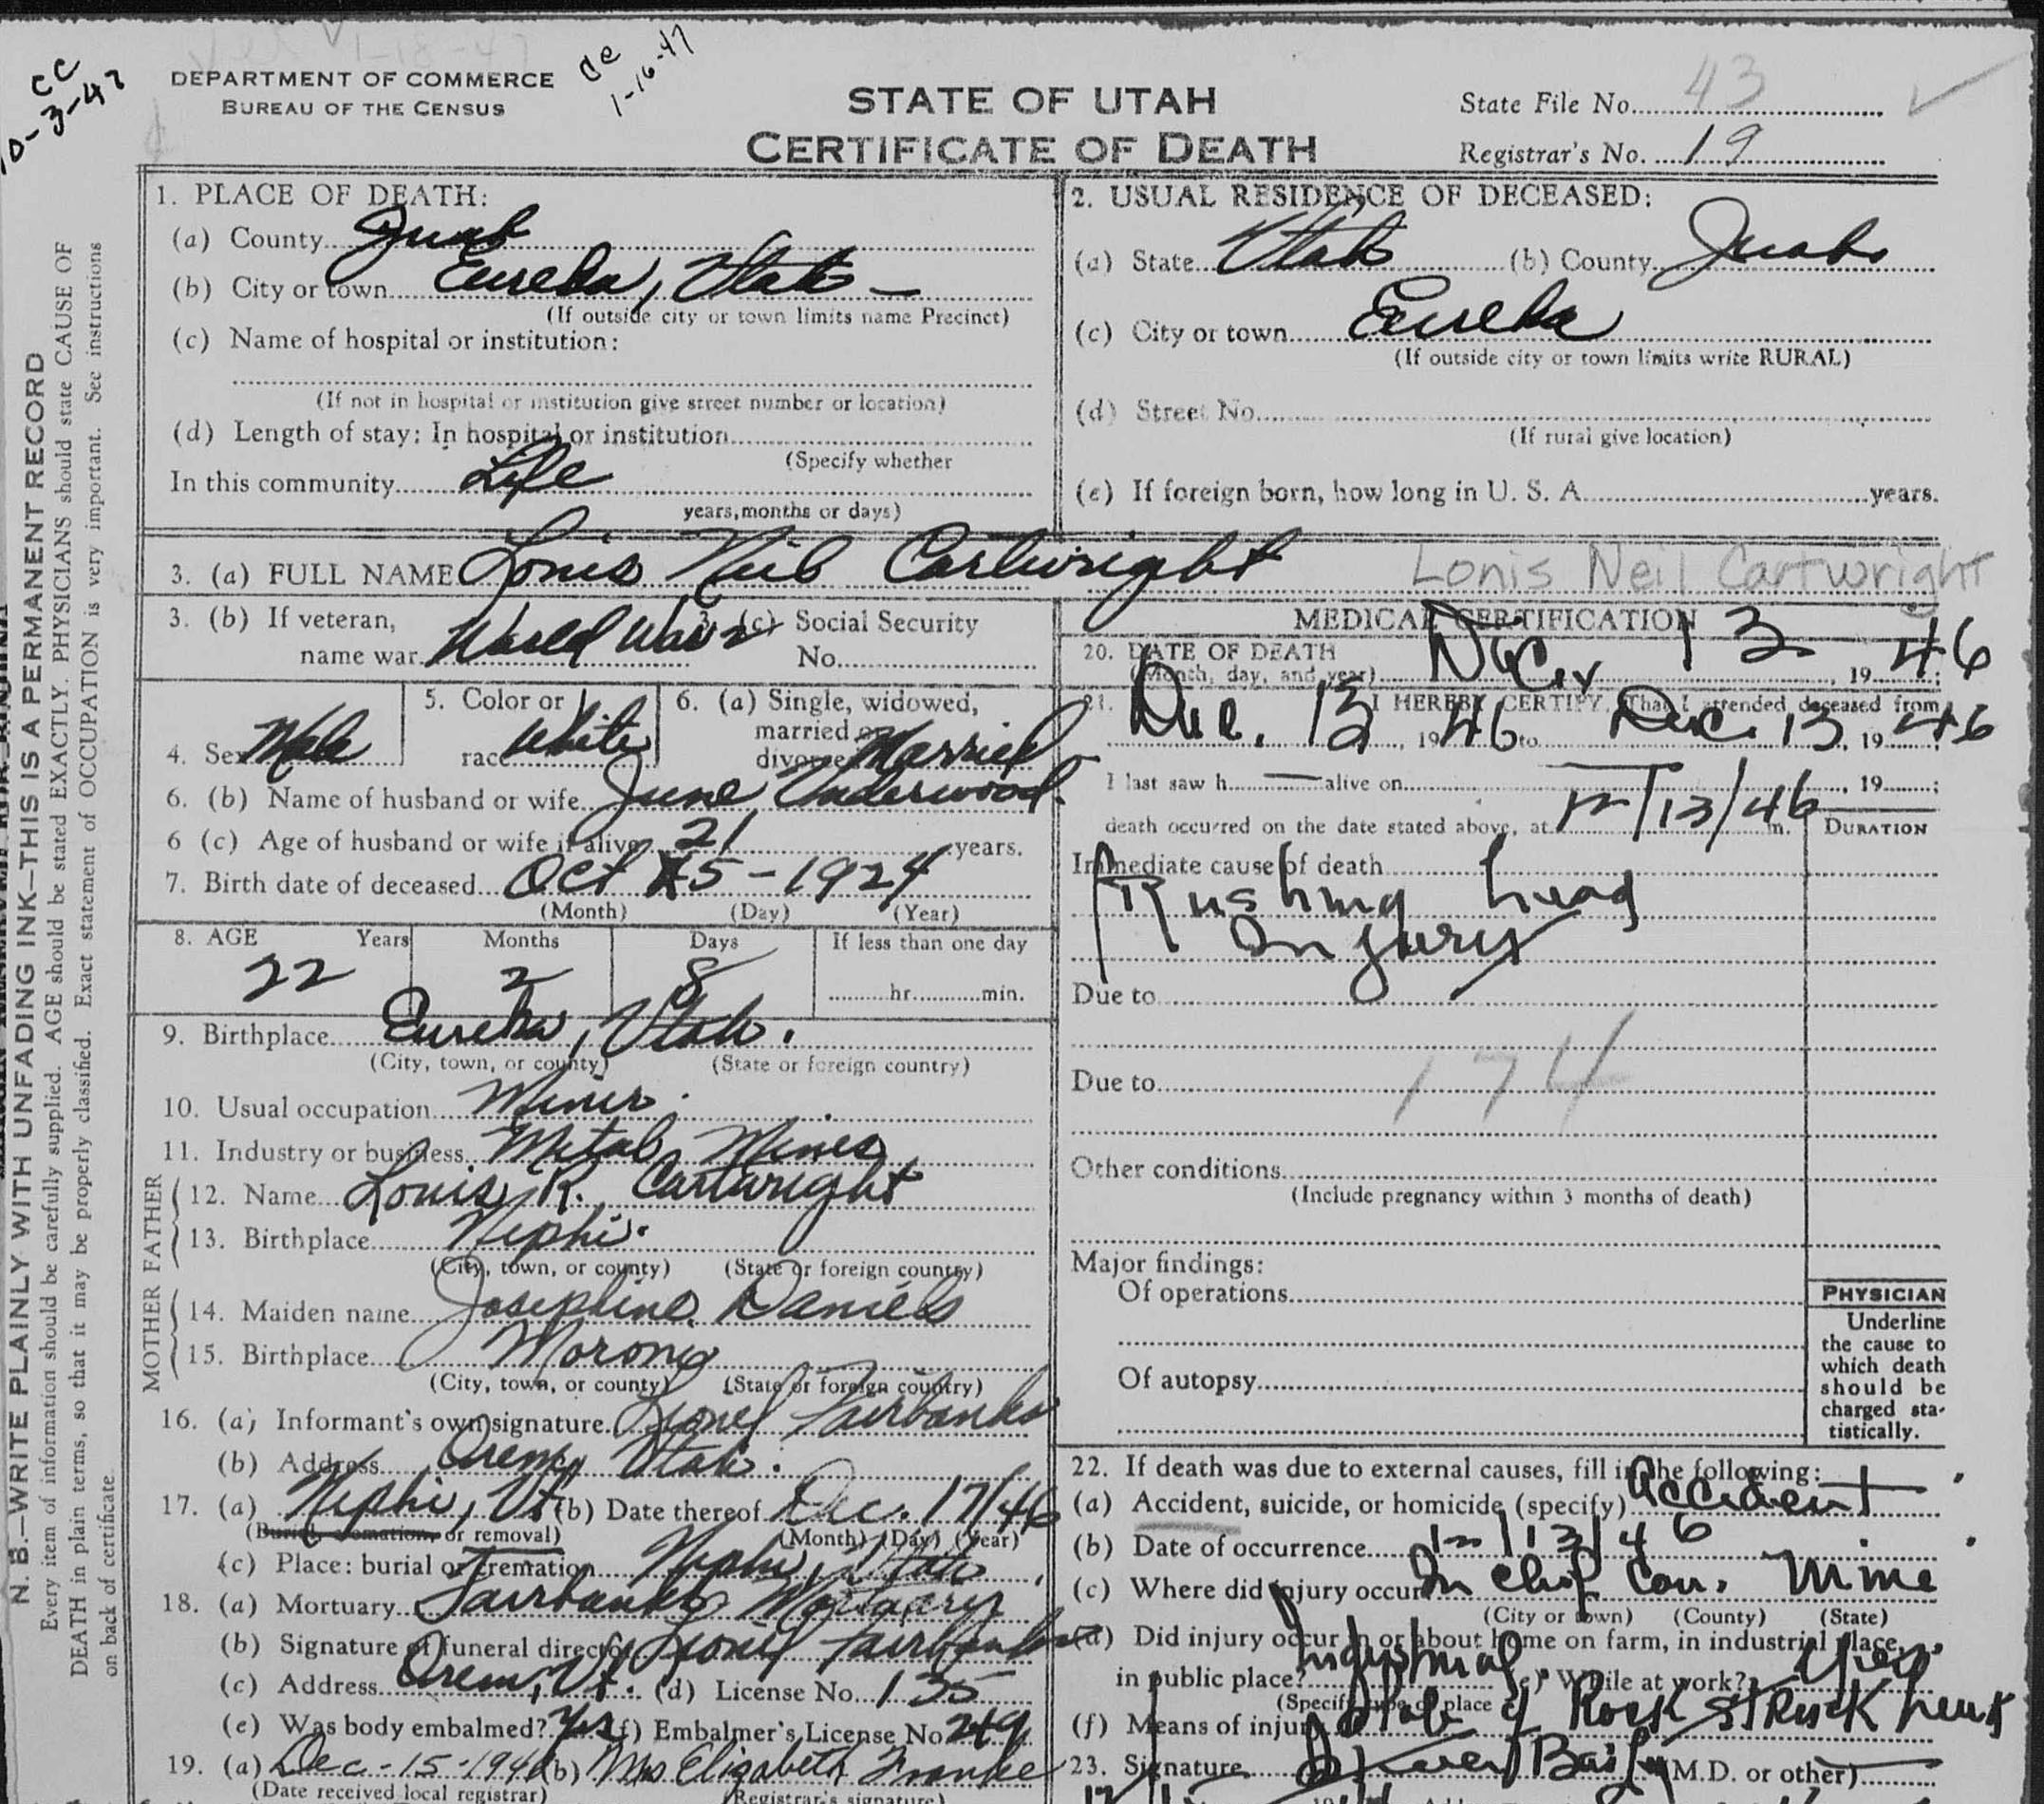 CC
10-3-47
1-16-47
DEPARTMENT OF COMMERCE
BUREAU OF THE CENSUS
STATE OF UTAH
CERTIFICATE OF DEATH
State File No. 43
Registrar's No. 19
N. B.—WRITE PLAINLY WITH UNFADING INK—THIS IS A PERMANENT RECORD
Every item of information should be carefully supplied. AGE should be stated EXACTLY. PHYSICIANS should state CAUSE OF
DEATH in plain terms, so that it may be properly classified. Exact statement of OCCUPATION is very important. See instructions
on back of certificate.
1. PLACE OF DEATH:
(a) County Juab
(b) City or town Eureka, Utah —
(If outside city or town limits name Precinct)
(c) Name of hospital or institution:
(If not in hospital or institution give street number or location)
(d) Length of stay: In hospital or institution
(Specify whether
In this community Life
years, months or days)
2. USUAL RESIDENCE OF DECEASED:
(a) State Utah (b) County Juab
(c) City or town Eureka
(If outside city or town limits write RURAL)
(d) Street No.
(If rural give location)
(e) If foreign born, how long in U. S. A. years.
3. (a) FULL NAME Lonis Neil Cartwright Lonis Neil Cartwright
3. (b) If veteran, name war World War 2 (c) Social Security No.
4. Sex Male
5. Color or race White
6. (a) Single, widowed, married or divorced Married
6. (b) Name of husband or wife June Underwood
6 (c) Age of husband or wife if alive 21 years.
7. Birth date of deceased Oct 5 - 1924
(Month) (Day) (Year)
8. AGE Years Months Days If less than one day
22 2 8 hr. min.
9. Birthplace Eureka, Utah.
(City, town, or county) (State or foreign country)
10. Usual occupation Miner
11. Industry or business Metal Mines
FATHER
12. Name Louis R. Cartwright
13. Birthplace Nephi
(City, town, or county) (State or foreign country)
MOTHER
14. Maiden name Josephine Daniels
15. Birthplace Moroni
(City, town, or county) (State or foreign country)
16. (a) Informant's own signature Lionel Fairbanks
(b) Address Orem, Utah.
17. (a) Nephi, Ut. (b) Date thereof Dec. 17/46
(Burial, cremation, or removal) (Month) (Day) (Year)
(c) Place: burial or cremation Nephi, Utah
18. (a) Mortuary Fairbanks Mortuary
(b) Signature of funeral director Lionel Fairbanks
(c) Address Orem, Ut. (d) License No. 135
(e) Was body embalmed? Yes (f) Embalmer's License No. 249
19. (a) Dec - 15 - 1946 (b) Mrs Elizabeth Franke
(Date received local registrar) (Registrar's signature)
MEDICAL CERTIFICATION
20. DATE OF DEATH
(Month, day, and year) Dec 13, 1946;
21. I HEREBY CERTIFY, That I attended deceased from
Dec. 13, 1946 to Dec. 13, 1946
I last saw h — alive on —, 19 ;
death occurred on the date stated above, at 12/13/46 m. DURATION
Immediate cause of death
Crushing head
Injury
Due to
Due to
174
Other conditions
(Include pregnancy within 3 months of death)
Major findings:
Of operations
Of autopsy
PHYSICIAN
Underline
the cause to
which death
should be
charged sta-
tistically.
22. If death was due to external causes, fill in the following:
(a) Accident, suicide, or homicide (specify) Accident
(b) Date of occurrence 12/13/46
(c) Where did injury occur In Chief Con. Mine
(City or town) (County) (State)
(d) Did injury occur in or about home on farm, in industrial place,
in public place? Industrial (e) While at work? Yes
(Specify type of place
(f) Means of injury Slab of Rock struck head
23. Signature Bailey (M.D. or other)